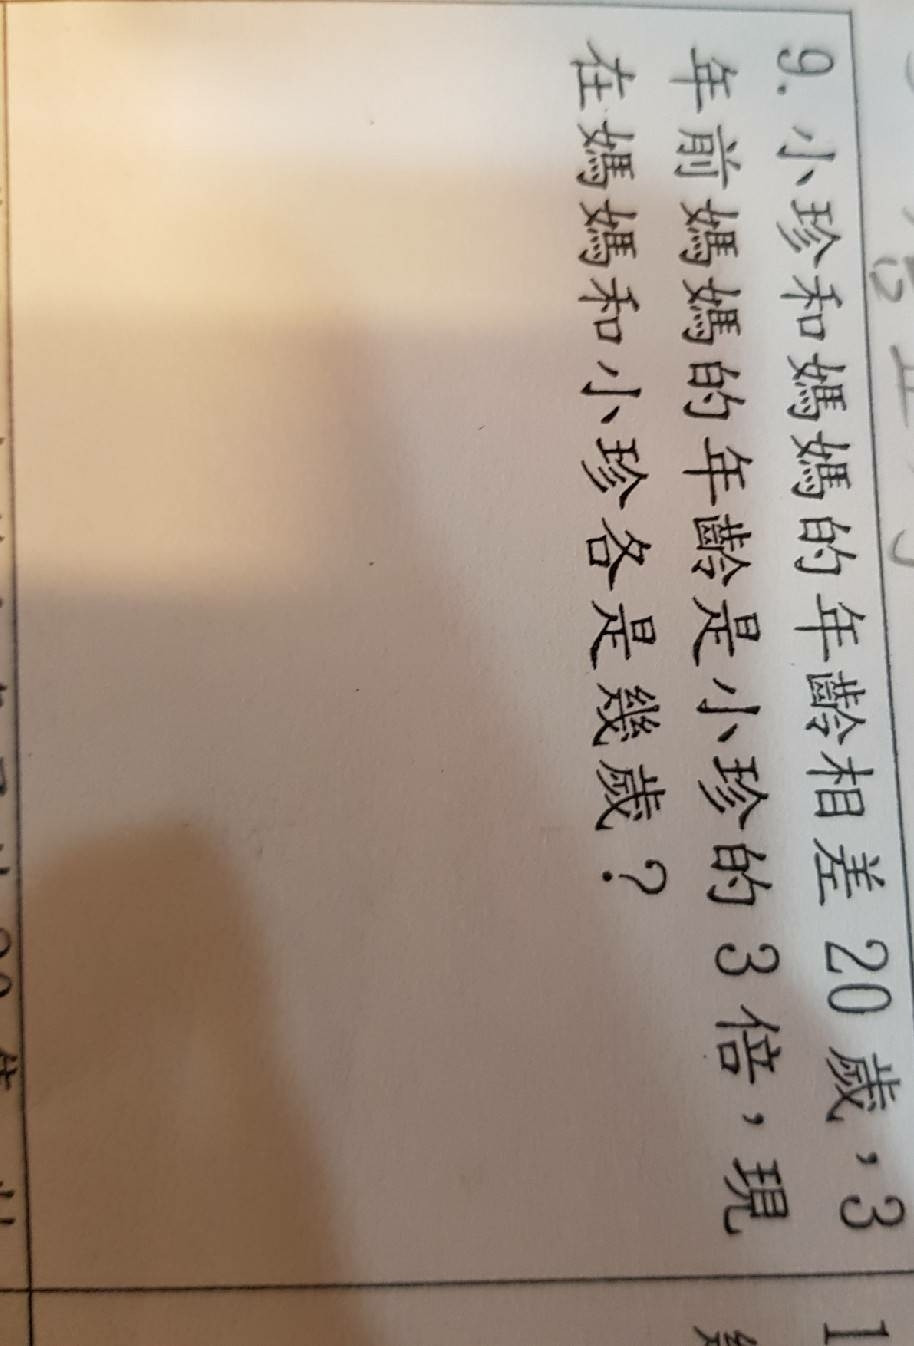 9. 小珍和媽媽的年齡相差 20 歲，3
年前媽媽的年齡是小珍的 3 倍，現
在媽媽和小珍各是幾歲？
1